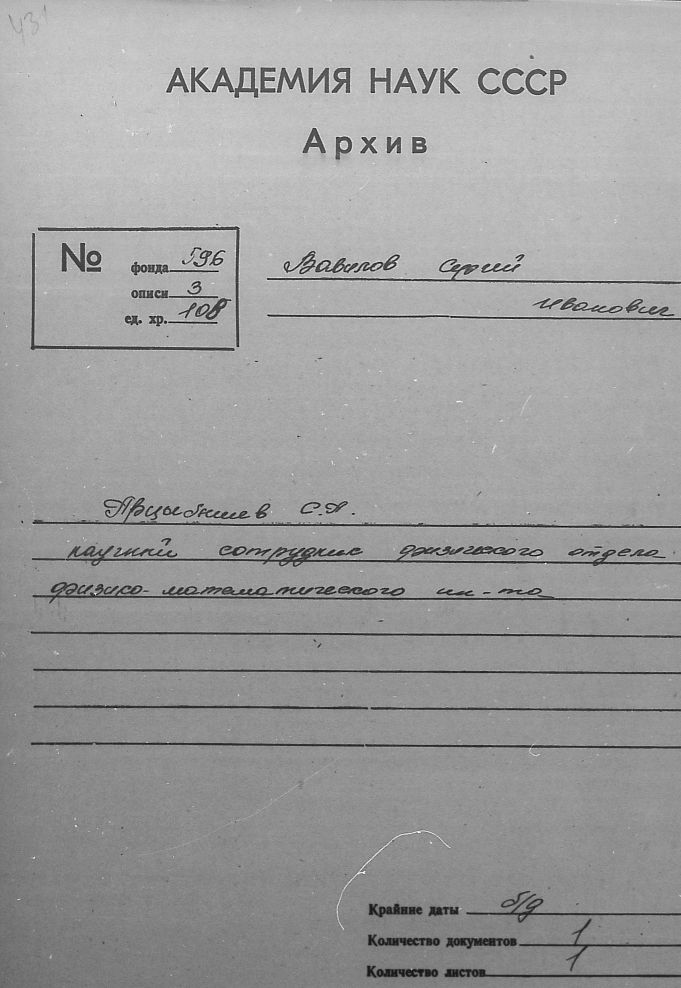 431
АКАДЕМИЯ НАУК СССР
Архив
№
фонда 596
описи 3
ед. хр. 108
Вавилов Сергей
Иванович
Арцыбышев С.А.
научный сотрудник физического отдела
физико-математического ин-та
Крайние даты б/д
Количество документов 1
Количество листов 1